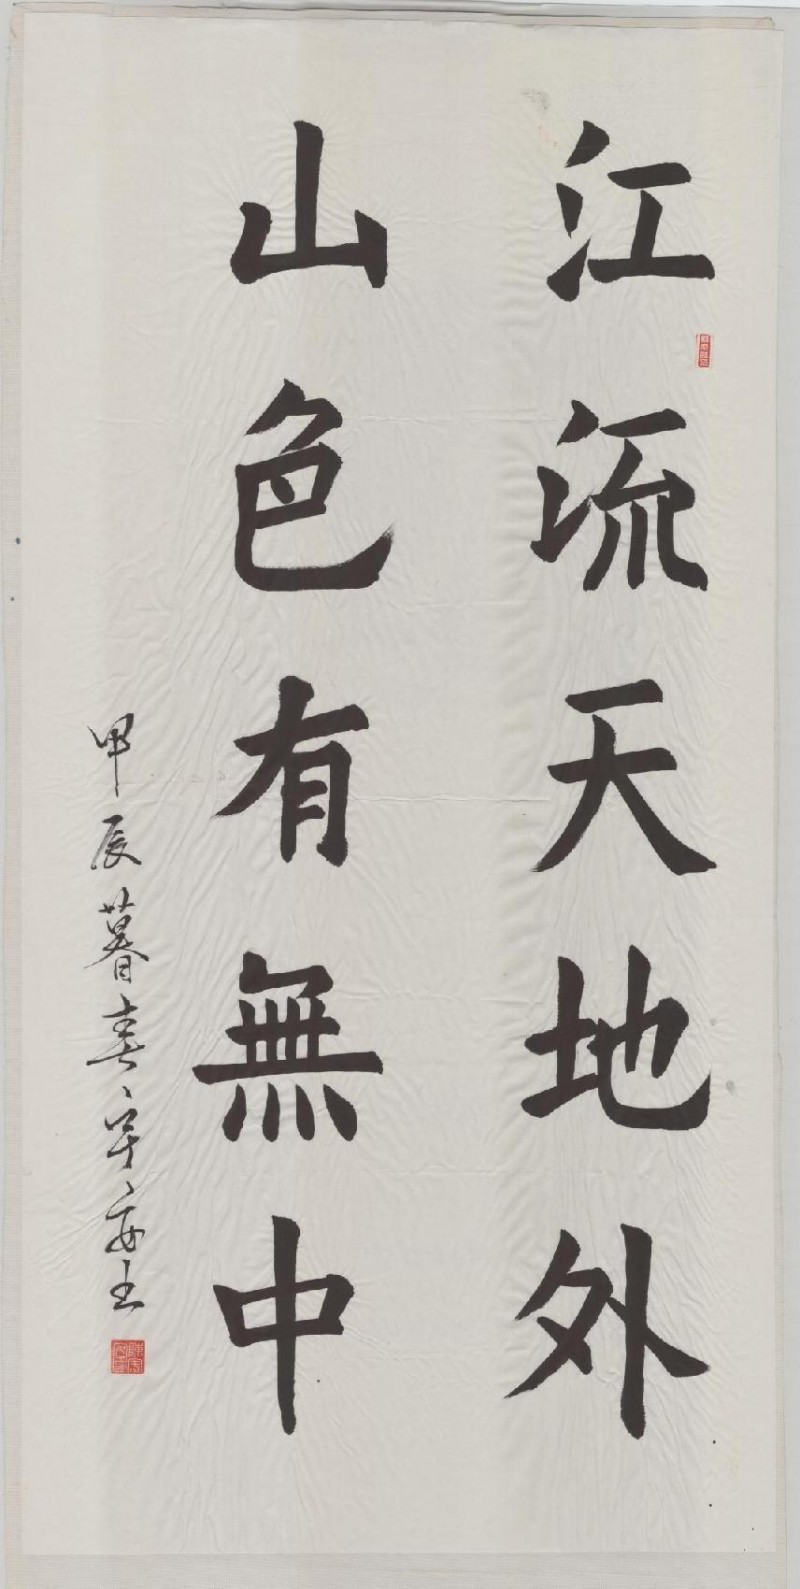 江流天地外
山色有無中
甲辰暮春